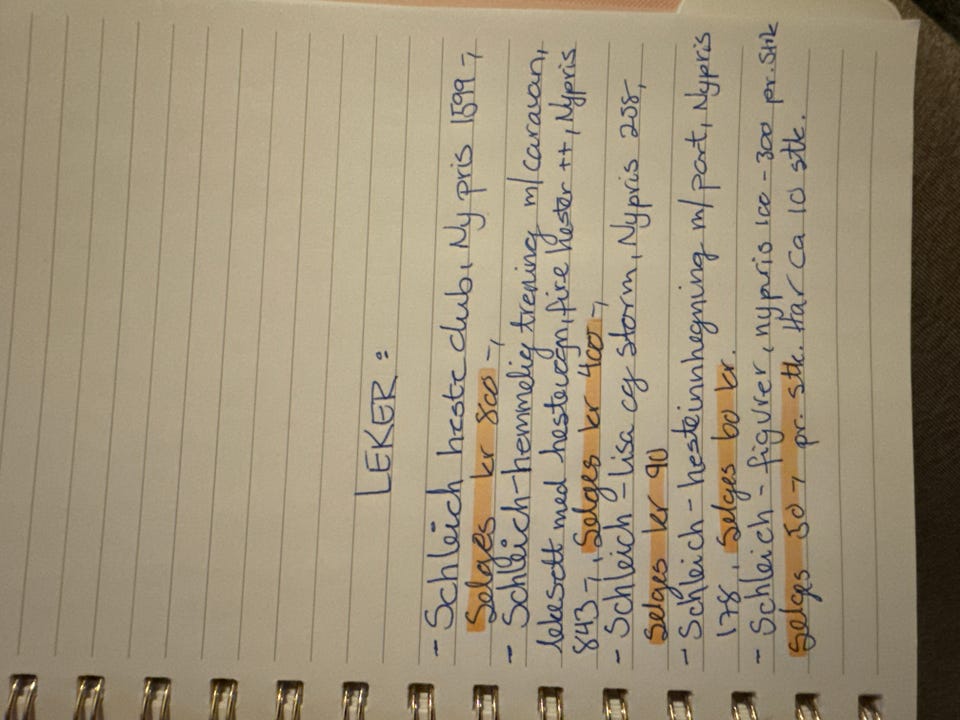 LEKER:
- Schleich heste club, Ny pris 1599-,
Selges kr 800-,
- Schleich-hemmelig trening m/caravan,
lekesett med hestevogn, fire hester ++, Nypris
843-, Selges kr 400-,
- Schleich-Lisa og storm, Nypris 258,
Selges kr 90
- Schleich-hesteinnhegning m/port, Nypris
178, Selges 60 kr.
- Schleich-figurer, nypris 100-300 pr. stk
Selges 50-, pr. stk. Har ca 10 stk.